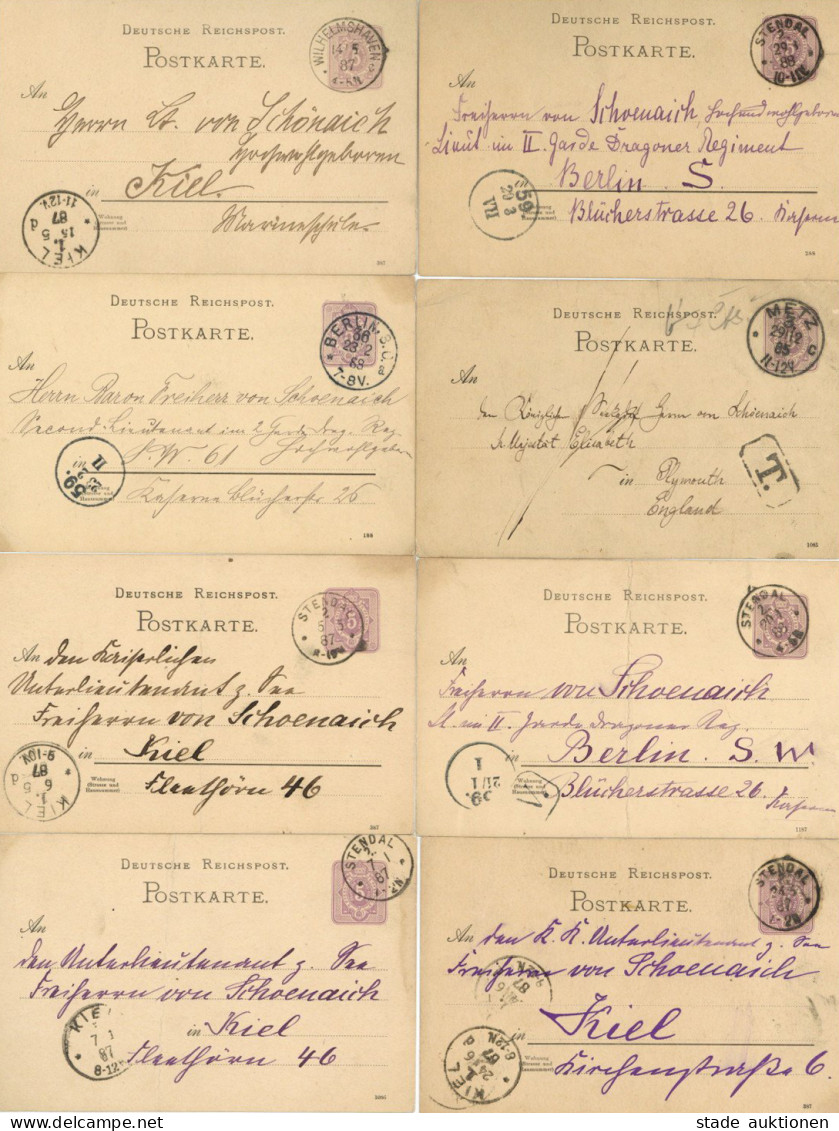 DEUTSCHE REICHSPOST.
POSTKARTE.
WILHELMSHAVEN
87
An
Herrn Lt. von Schönaich
Hochwohlgeboren
in Kiel.
Marineschule
Wohnung
(Strasse und
Hausnummer)
KIEL
1.
15 5
87
11-12V.
d
387
DEUTSCHE REICHSPOST.
POSTKARTE.
STENDAL
2
88
An
Freiherrn von Schoenaich Hochundwohlgeboren
Lieut im II. Garde Dragoner Regiment
in Berlin S.
Blücherstrasse 26
Wohnung
59
288
DEUTSCHE REICHSPOST.
POSTKARTE.
BERLIN. S.O.
23 2
7-8V.
An
Herrn Baron Freiherr von Schoenaich
Second-Lieutenant im 2 Garde Drag. Reg.
S.W. 61
in
Kaserne Blücherstr 26
59.
188
DEUTSCHE REICHSPOST.
POSTKARTE.
METZ
C
11-12V
An
Herrn von Schöenaich
Elisabeth
in Plymouth
England
T.
1085
DEUTSCHE REICHSPOST.
POSTKARTE.
STENDAL
2
87
An den Kaiserlichen
Unterlieutenant z. See
Freiherrn von Schoenaich
in Kiel
Fleethörn 46
Wohnung
(Strasse und
Hausnummer)
KIEL
1.
6 5
87
9-10V.
d
387
DEUTSCHE REICHSPOST.
POSTKARTE.
STENDAL
An
Freiherrn von Schoenaich
im II. Garde Dragoner Reg.
in Berlin. S. W.
Blücherstrasse 26.
59.
21/1
1
1187
DEUTSCHE REICHSPOST.
POSTKARTE.
STENDAL
7 1
87
An
den Unterlieutenant z. See
Freiherrn von Schoenaich
in Kiel
Fleethörn 46
KIEL
87
8-12
1086
DEUTSCHE REICHSPOST.
POSTKARTE.
STENDAL
87
An den K. K. Unterlieutenant z. See
Freiherrn von Schoenaich
in Kiel
Kirchenstraße 6.
KIEL
1
24 6
87
8-12N.
d
387
stade auktionen